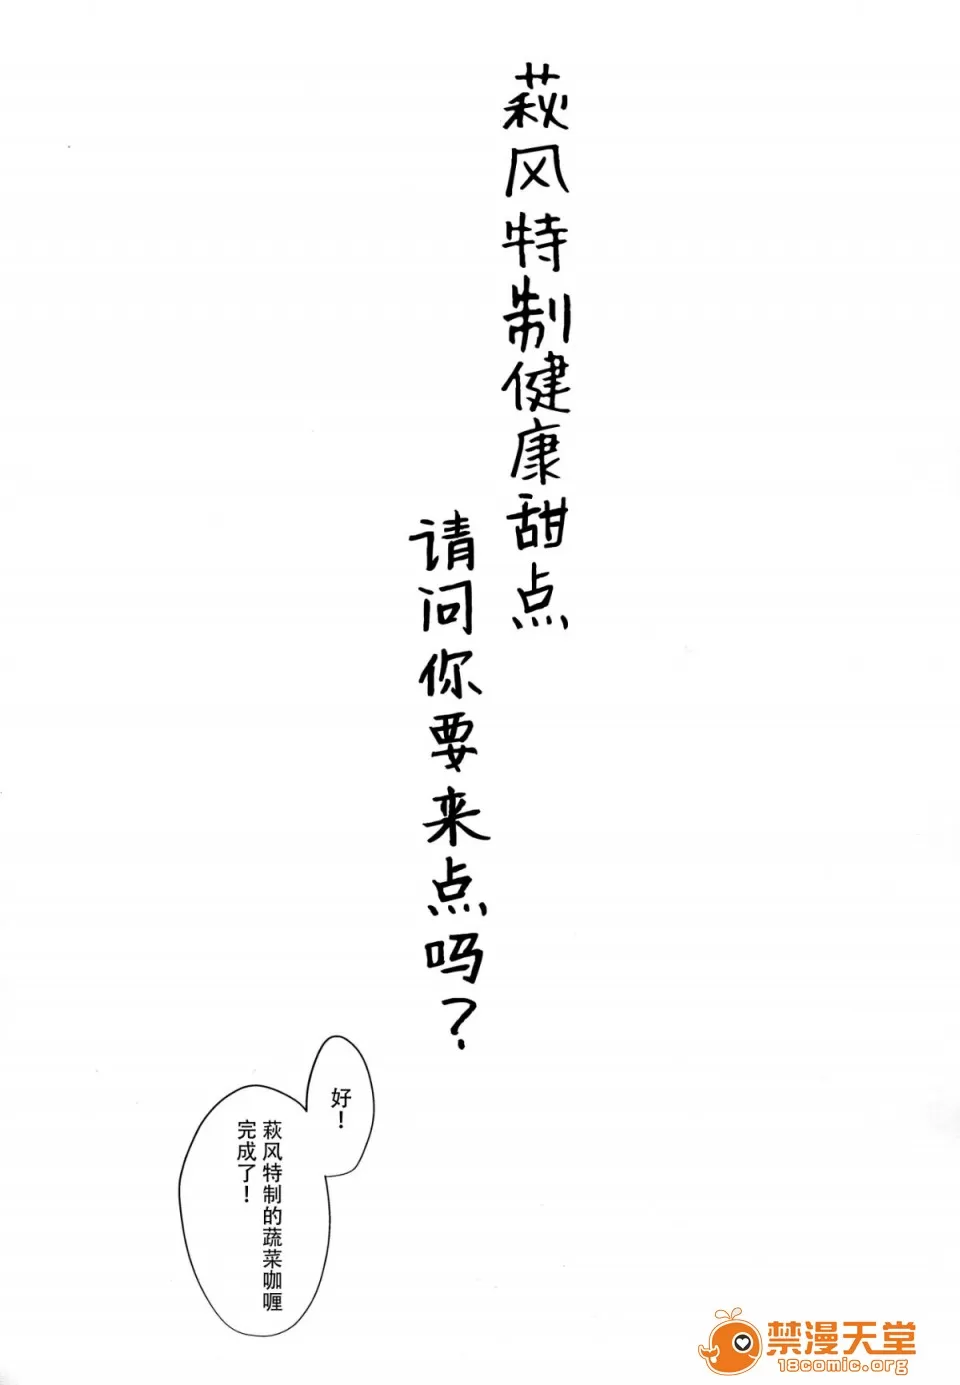 萩风特制健康甜点
请问你要来点吗？
好！
萩风特制的蔬菜咖喱
完成了！
禁漫天堂
18comic.org